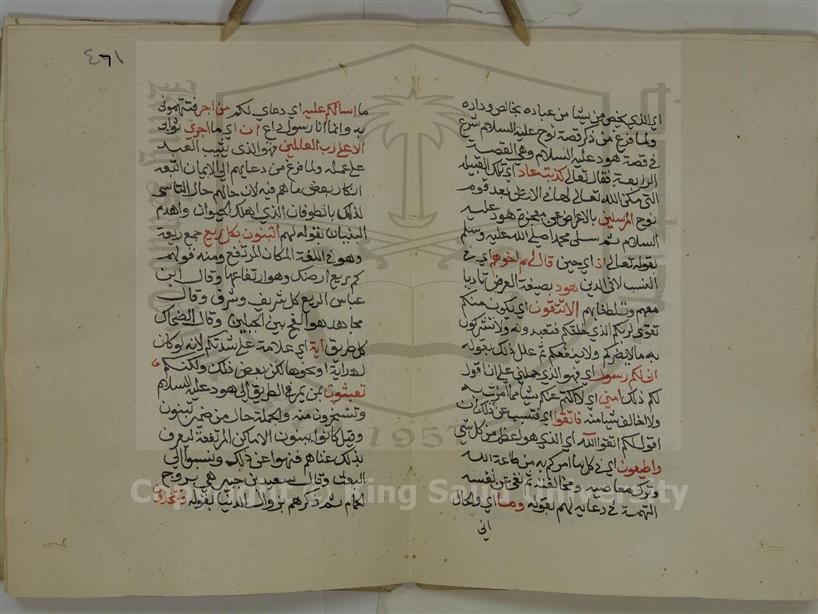 ٤٦١
اي الذي يخص من يشا من عباده بخالص وداده
ولما فرغ من ذكر قصة نوح عليه السلام شرع
في قصة هود عليه السلام وهي القصة
الرابعة فقال تعالى كذبت عاد اي تلك القبيلة
التي مكن الله تعالى لها في الارض بعد قوم
نوح المرسلين بالاعراض عن معجزة هود عليه
السلام ثم سلى محمدا صلى الله عليه وسلم
بقوله تعالى اذ اي حين قال لهم اخوهم اي في
النسب لا في الدين هود بصيغة العرض تادبا
معهم وتلطفا بهم الا تتقون اي يكون منكم
تقوى لربكم الذي خلقكم فتعبدونه ولا تشركون
به مالا يضركم ولا ينفعكم ثم علل ذلك بقوله
اني لكم رسول اي فهو الذي حملني على ان اقول
لكم ذلك امين اي لا اكتم عنكم شيا مما امرت به
ولا اخالف شيا منه فاتقوا اي فتسبب عن ذلك ان
اقول لكم اتقوا الله اي الذي هو اعظم من كل شي
واطيعون اي في كل ما امركم به من طاعة الله
وترك معاصيه ومخالفته ثم نفى عن نفسه
التهمة في دعايه لهم بقوله وما اي والحال
اني
ما اسالكم عليه اي دعاي لكم من اجر فتتهموني
به وانما انا رسول داع ان اي ما اجري ثوابي
الا على رب العالمين فهو الذي يثيب العبد
على عمله ولما فرغ من دعايهم الى الايمان اتبعه
انكار بعض ما هم فيه لان حالهم حال الناسي
لذلك بالطوفان الذي اهلك الحيوان واهدم
البنيان بقوله لهم اتبنون بكل ريع جمع ريعة
وهو في اللغة المكان المرتفع ومنه قولهم
كم ريع ارضك وهو ارتفاعها وقال ابن
عباس الريع كل شريف وشرف وقال
مجاهد هو الفج بين الجبلين وقال الضحاك
كل طريق اية اي علامة على شدتكم لانه لو كان
لهداية او نحوها لكن بعض ذلك ولكنكم
تعبثون بمن يمر في الطريق الى هود عليه السلام
وتسخرون منه والجملة حال من ضمير تبنون
وقيل كانوا يبنون الاماكن المرتفعة ليعرف
بذلك غناهم فنهوا عن ذلك ونسبوا الى
العبث وقال سعيد بن جبير هي بروج
الحمام ثم ذكرهم بزوال الدنيا بقوله وتتخذون
1957
Copyright © King Saud University